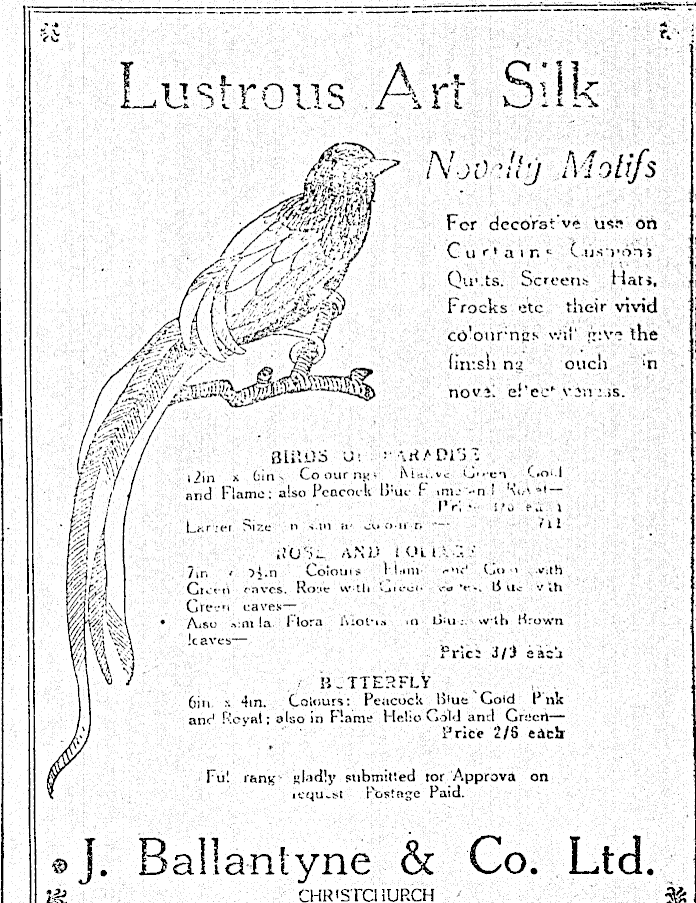 Lustrous Art Silk
Novelty Motifs
For decorative use on
Curtains Cushions
Quilts, Screens Hats,
Frocks etc their vivid
colourings will give the
finishing touch in
novel effectiveness.
BIRDS OF PARADISE
12in x 6in. Colourings Mauve Green Gold
and Flame; also Peacock Blue Flame and Royal—
Price each
Larger Size in similar colourings— 7/11
ROSE AND FOLIAGE
7in x 5½in. Colours Flame and Gold with
Green leaves, Rose with Green leaves, Blue with
Green leaves—
Also similar Floral Motifs in Blue with Brown
leaves—
Price 3/3 each
BUTTERFLY
6in. x 4in. Colours: Peacock Blue Gold Pink
and Royal; also in Flame Helio Gold and Green—
Price 2/6 each
Full range gladly submitted for Approval on
request Postage Paid.
J. Ballantyne & Co. Ltd.
CHRISTCHURCH